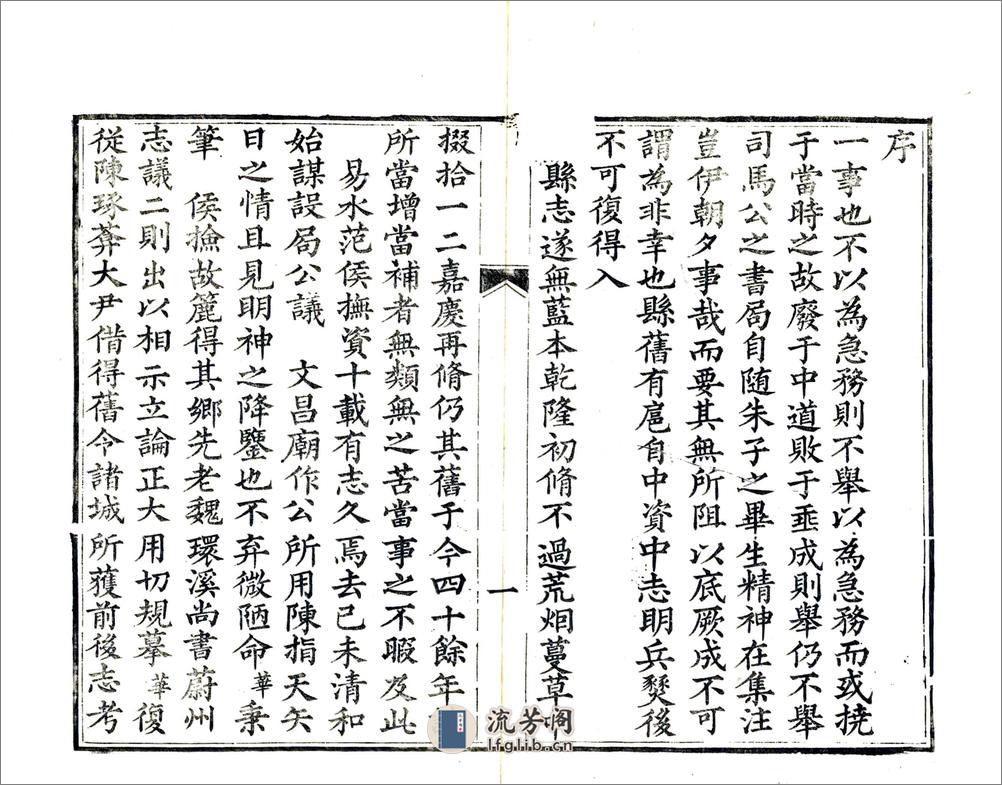 序
一事也不以為急務則不舉以為急務而或撓
于當時之故廢于中道敗于垂成則舉仍不舉
司馬公之書局自隨朱子之畢生精神在集注
豈伊朝夕事哉而要其無所阻以底厥成不可
謂為非幸也縣舊有扈自中資中志明兵燹後
不可復得入
縣志遂無藍本乾隆初脩不過荒烟蔓草
一
掇拾一二嘉慶再脩仍其舊于今四十餘年
所當增當補者無類無之苦當事之不暇及此
易水范侯撫資十載有志久焉去已未清和
始謀設局公議 文昌廟作公所用陳指天矢
日之情且見明神之降鑒也不弃微陋命華秉
筆 侯撿故簏得其鄉先老魏環溪尚書蔚州
志議二則出以相示立論正大用切規摹華復
從陳琢菴大尹借得舊令諸城所獲前後志考
流芳阁
lfglib.cn